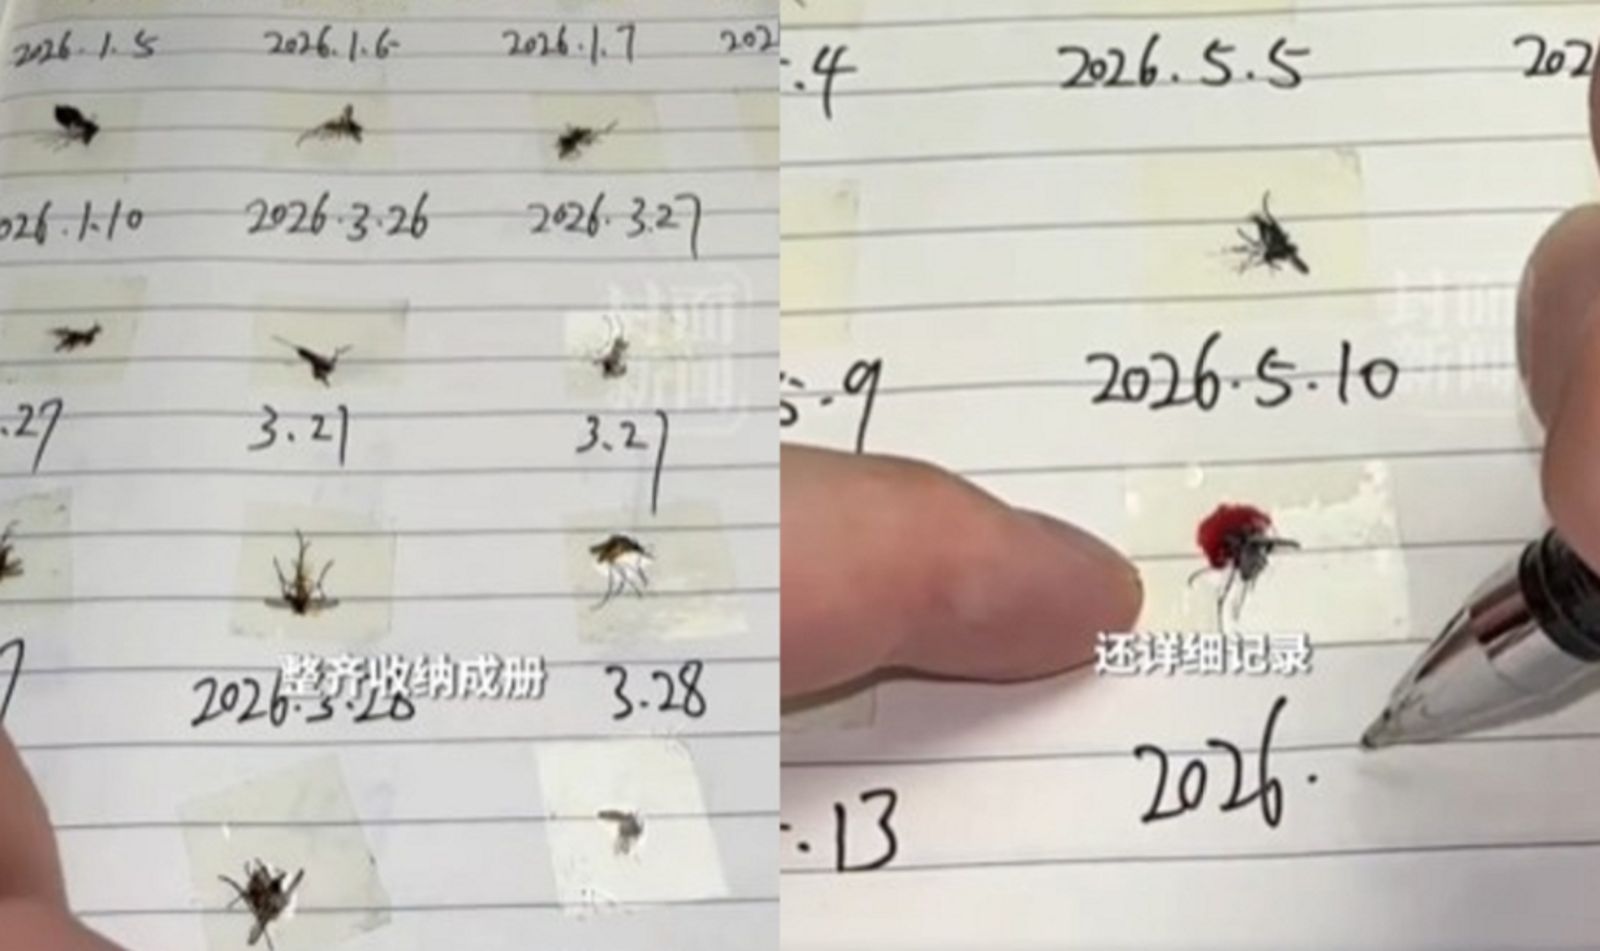 2026.1.5 2026.1.6 2026.1.7 202
026.1.10 2026.3.26 2026.3.27
.27 3.27 3.27
整齐收纳成册
2026.3.28 3.28
封面新闻
.4 2026.5.5 202
5.9 2026.5.10
封面新闻
还详细记录
.13 2026.